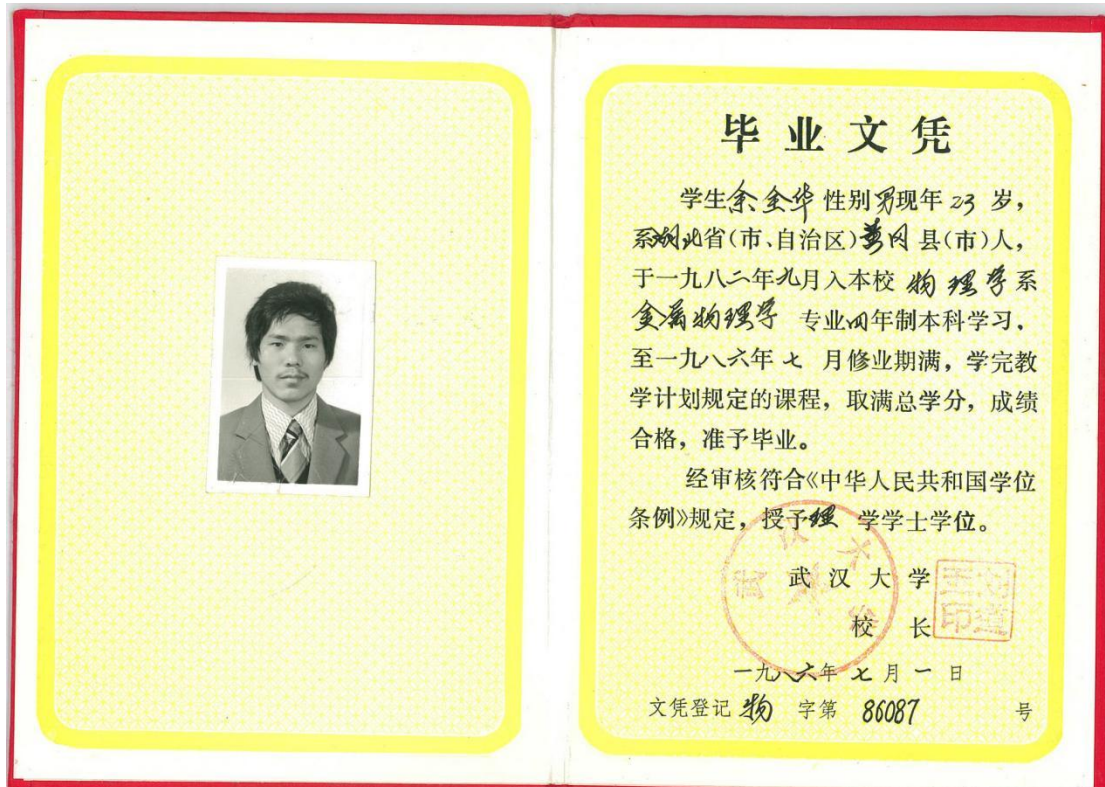 毕业文凭
学生余金华性别男现年23岁，
系湖北省(市、自治区)黄冈县(市)人，
于一九八二年九月入本校物理学系
金属物理学专业四年制本科学习，
至一九八六年七月修业期满，学完教
学计划规定的课程，取满总学分，成绩
合格，准予毕业。
经审核符合《中华人民共和国学位
条例》规定，授予理学学士学位。
武汉大学
武汉大学
校长
刘道玉印
一九八六年七月一日
文凭登记物字第86087号